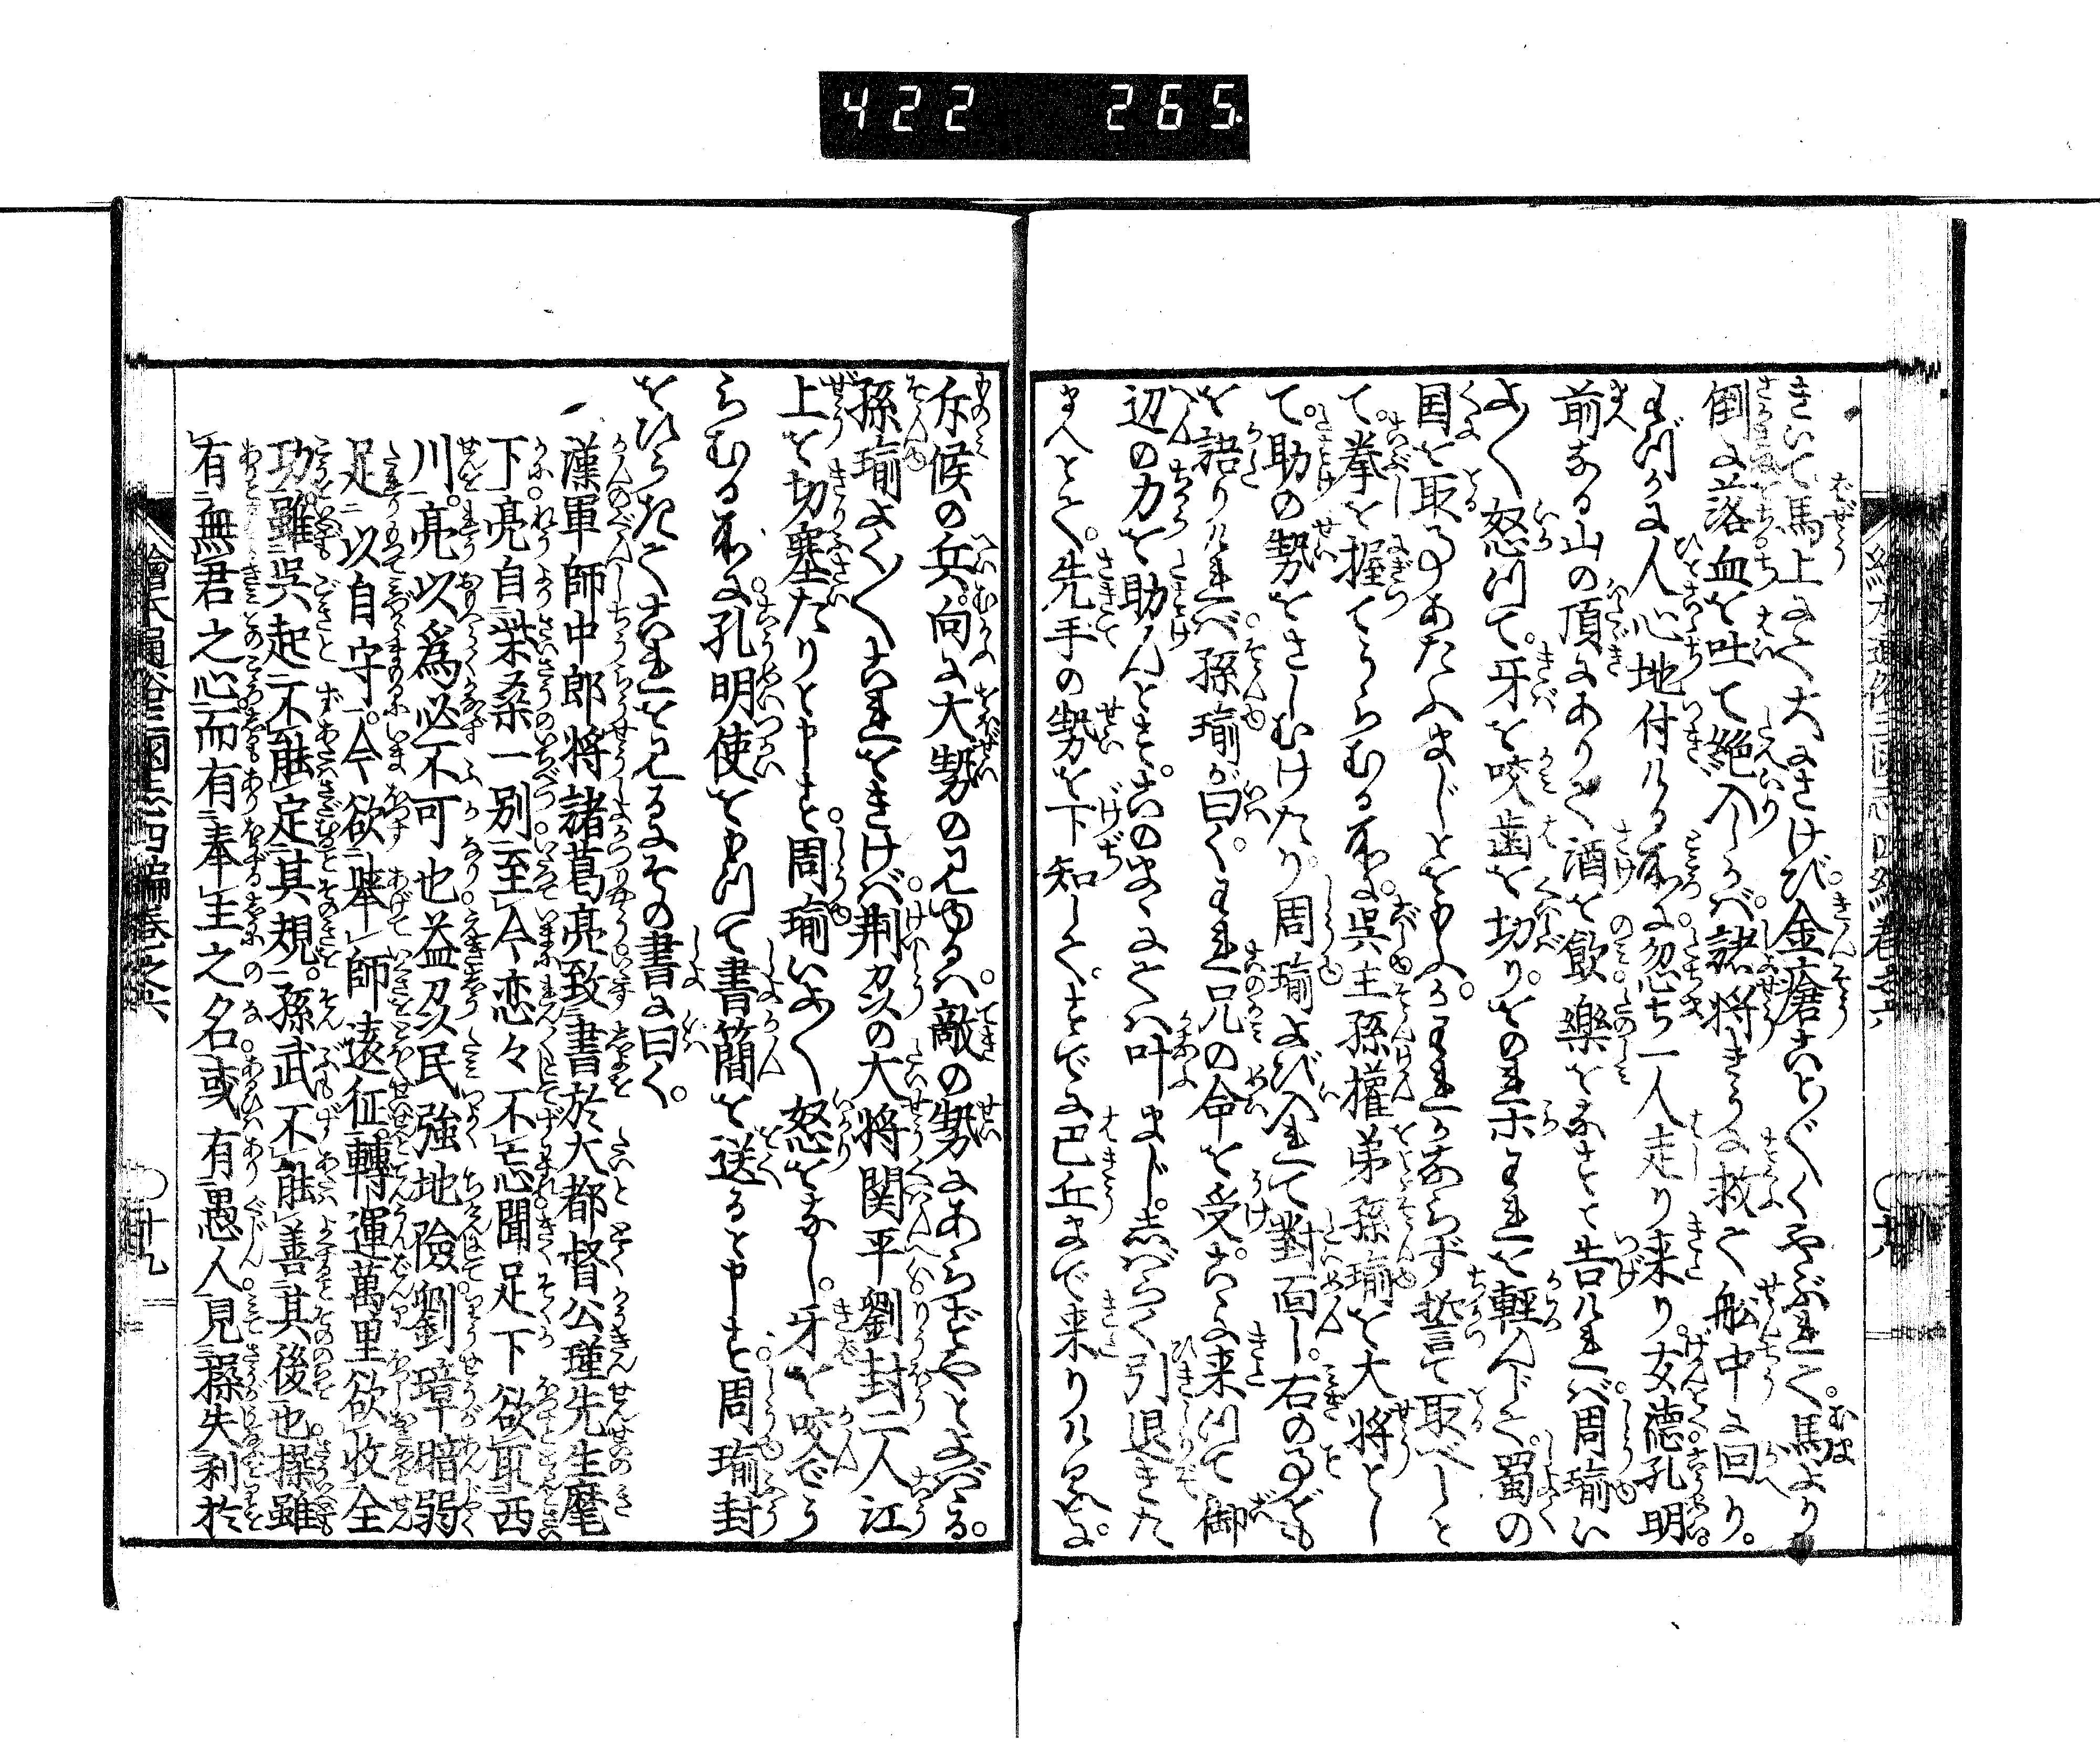 422 265
きいて馬上にて大にさけび金瘡こと〴〵くやぶれて。馬より
倒に落血を吐て絶入しかバ諸将きうに救て舩中に回り。
わづかに人心地付ける所に忽ち一人走り来り玄徳孔明
前なる山の頂にありて酒を飲樂をなすと告けれバ周瑜い
よ〳〵怒つて。牙を咬歯を切り。をのれ我を軽んじて。蜀の
国を取事あたふまじとをもふ。かれかならず誓て取べしと
て。拳を握てうらむる所に。呉主孫權弟孫瑜を大将とし
て。助の勢をさしむけたり周瑜よび入れて對面し。右の事ども
を語りけれバ孫瑜が曰く。われ兄の命を受。こゝに来つて御
辺の力を助んとす。このまゝにてハ叶まじ。志ばらく引退きた
まへとて。先手の勢を下知して。すでに巴丘まで来りける処に。
斥候の兵。向に大勢の見ゆるハ。敵の勢にあらずやとよバゝる。
孫瑜よく〳〵これをきけバ荆刕の大将関平劉封二人江
上を切塞たりと申す。周瑜いよ〳〵怒をなし。牙を咬でう
らむる所に。孔明使をもつて書簡を送ると申す。周瑜封
をひらきてこれを見るにその書に曰く。
漢軍師中郎将諸葛亮致書於大都督公瑾先生麾
下亮自柴桑一別至今恋々不忘聞足下欲取西
川。亮以爲必不可也益刕民強地險劉璋暗弱
足以自守。今欲擧師遠征轉運萬里欲收全
功。雖呉起不能定其規。孫武不能善其後也操雖
有無君之心而有奉主之名或有愚人見操失利於
繪本通俗三國志四編巻之六
十九